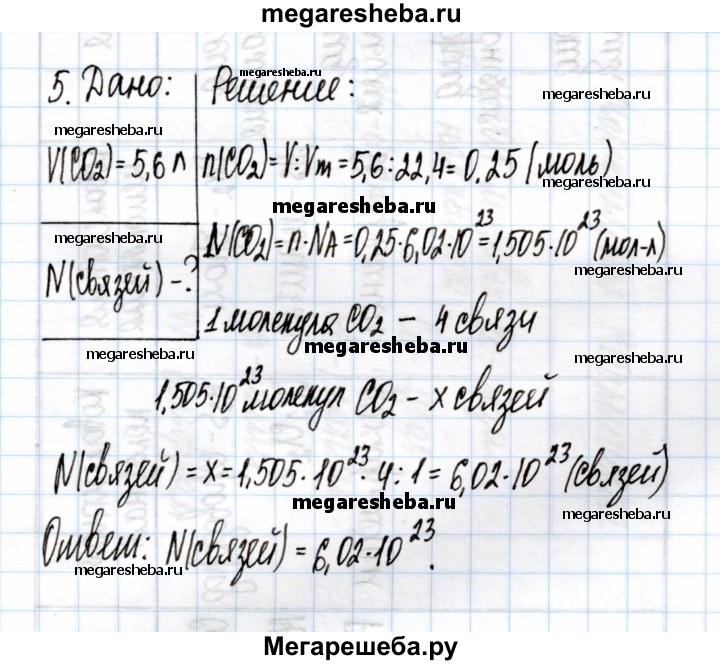 megaresheba.ru
5. Дано: Решение:
megaresheba.ru
megaresheba.ru
megaresheba.ru
V(CO₂)=5,6 л n(CO₂)=V:Vm=5,6:22,4=0.25 (моль)
megaresheba.ru
megaresheba.ru
N(CO₂)=n·NA=0,25·6,02·10²³=1,505·10²³(мол-л)
megaresheba.ru
N(связей)-?
1 молекула CO₂ – 4 связи
megaresheba.ru
megaresheba.ru
megaresheba.ru
1,505·10²³ молекул CO₂ – x связей
N(связей)=x=1,505·10²³·4:1=6,02·10²³(связей)
megaresheba.ru
megaresheba.ru
Ответ: N(связей)=6,02·10²³.
megaresheba.ru
megaresheba.ru
Мегарешеба.ру